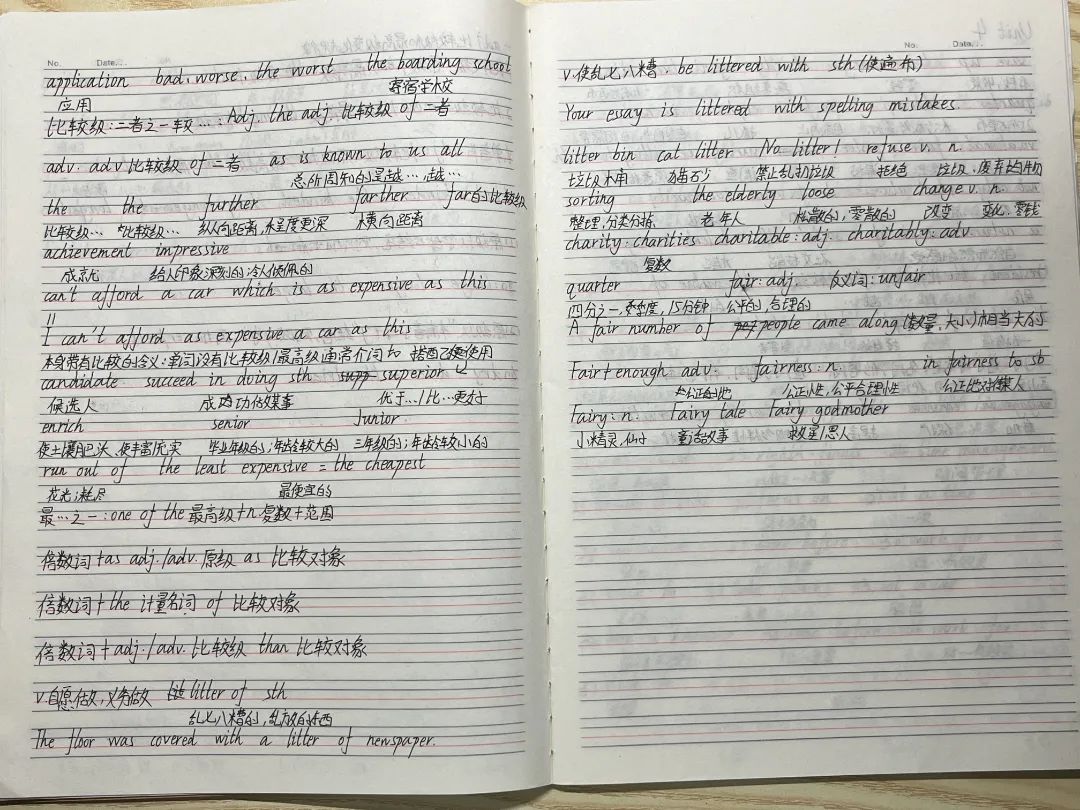 No. Date...
application bad, worse, the worst the boarding school
应用 寄宿学校
比较级:二者之一较…:Adj. the adj. 比较级 of 二者
adv. adv比较级 of 二者 as is known to us all
总所周知的是越…,越…
the the further farther far的比较级
比较级… 比较级… 纵向距离,程度更深 横向距离
achievement impressive
成就 给人印象深刻的;令人倾佩的
can't afford a car which is as expensive as this
=
I can't afford as expensive a car as this
本身带有比较的含义:单词没有比较级/最高级通常介词to 搭配使用
candidate succeed in doing sth superior
候选人 成功做某事 优于…/比…更好
enrich senior Junior
使土壤肥沃、使丰富/充实 毕业年级的;年龄较大的 三年级的;年龄较小的
run out of the least expensive = the cheapest
花光;耗尽 最便宜的
最…之一:one of the 最高级+n.复数+范围
倍数词+as adj./adv.原级 as 比较对象
倍数词+the 计量名词 of 比较对象
倍数词+adj./adv.比较级 than 比较对象
v.自愿做,义务做 litter of sth
乱七八糟的,乱放的东西
The floor was covered with a litter of newspaper.
Unit 4
No. Date...
v.使乱七八糟. be littered with sth (使遍布)
Your essay is littered with spelling mistakes.
litter bin cat litter No litter! refuse v. n.
垃圾桶 猫砂 禁止乱扔垃圾 拒绝 垃圾、废弃的物
sorting the elderly loose change v. n.
整理,分类分拣 老年人 松散的,零散的 改变 变化、零钱
charity:charities charitable:adj. charitably:adv.
复数
quarter fair:adj. 反义词:unfair
四分之一,季度,15分钟 公平的,合理的
A fair number of people came along (数量,大小)相当大的
Fairt enough adv. fairness:n. in fairness to sb
公正的地 公正性,公平合理性 公正地对待某人
Fairy:n. Fairy tale Fairy godmother
小精灵.仙子 童话故事 救星/恩人